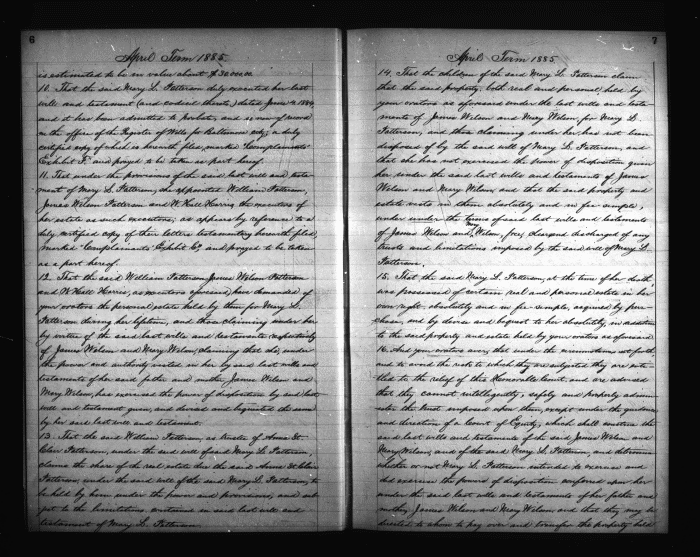 6
April Term 1885
is estimated to be in value about $30000.00
10. That the said Mary L. Patterson duly executed her last
will and testament (and codicil thereto,) dated June 4, 1884
and it has been admitted to probate, and is now of record
in the office of the Register of Wills for Baltimore City, a duly
certified copy of which is herewith filed, marked "Complainants'
Exhibit F" and prayed to be taken as part hereof.
11. That under the provisions of the said last will and testa-
ment of Mary L. Patterson, she appointed William Patterson,
James Wilson Patterson and W. Hall Harris the executors of
her estate as such executors; as appears by reference to a
duly certified copy of their letters testamentary herewith filed,
marked "Complainants' Exhibit G" and prayed to be taken
as a part hereof.
12. That the said William Patterson, James Wilson Patterson
and W. Hall Harris, as executors aforesaid, have demanded of
your orators the personal estate held by them for Mary L.
Patterson during her lifetime, and those claiming under her
by virtue of the said last wills and testaments respectively
of James Wilson and Mary Wilson, claiming that she, under
the power and authority vested in her by said last wills and
testaments of her said father and mother James Wilson and
Mary Wilson, has exercised the power of disposition by said last
will and testament given, and devised and bequeathed the same
by her said last will and testament.
13. That the said William Patterson, as trustee of Annie St.
Clair Patterson, under the said will of said Mary L. Patterson,
claims the share of the real estate for the said Annie St. Clair
Patterson, under the said will of the said Mary L. Patterson, to
be held by him under the power and provisions, and sub-
ject to the limitations contained in said last will and
testament of Mary L. Patterson.
7
April Term 1885
14. That the children of the said Mary L. Patterson claim
that the said property, both real and personal, held by
your orators as aforesaid under the last wills and testa-
ments of James Wilson and Mary Wilson, for Mary L.
Patterson, and those claiming under her has not been
disposed of by the said will of Mary L. Patterson, and
that she has not exercised the power of disposition given
her under the said last wills and testaments of James
Wilson and Mary Wilson, and that the said property and
estate vests in them absolutely and in fee simple,
under the terms of said last wills and testaments
of James Wilson and Mary Wilson, free, cleared discharged of any
trusts and limitations imposed by the said will of Mary L.
Patterson.
15. That the said Mary L. Patterson, at the time of her death,
was possessed of certain real and personal estate in her
own right absolutely and in fee simple, acquired by pur-
chase, and by devise and bequest to her absolutely, in addition
to the said property and estate held by your orators as aforesaid.
16. And your orators aver, that under the circumstances set forth
and to avoid the risk to which they are subjected they are enti-
tled to the relief of this Honorable Court, and are advised
that they cannot intelligently, safely and properly admin-
ister the trust imposed upon them, except under the guidance
and direction of a Court of Equity, which shall construe the
said last wills and testaments of the said James Wilson and
Mary Wilson, and of the said Mary L. Patterson, and determine
whether or not Mary L. Patterson intended to exercise and
did exercise the powers of disposition conferred upon her
under the said last wills and testaments of her father and
mother, James Wilson and Mary Wilson and that they may be
directed to whom to pay over and transfer the property held